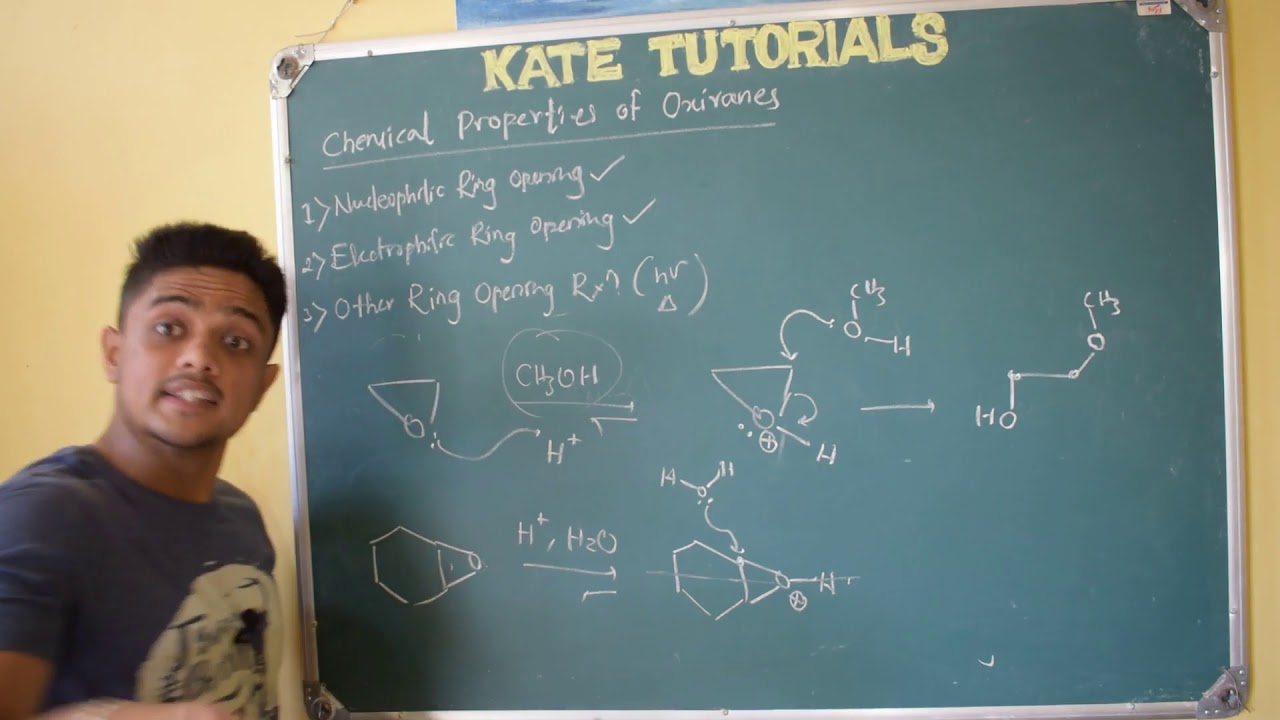 KATE TUTORIALS
Chemical Properties of Oxiranes
1) Nucleophilic Ring Opening ✓
2) Electrophilic Ring Opening ✓
3) Other Ring Opening Rxn (hν
Δ)
CH3
O
H
CH3
O
CH3OH
H+
O
O
⊕
H
HO
H
H
O
H+, H2O
O
O
H
⊕